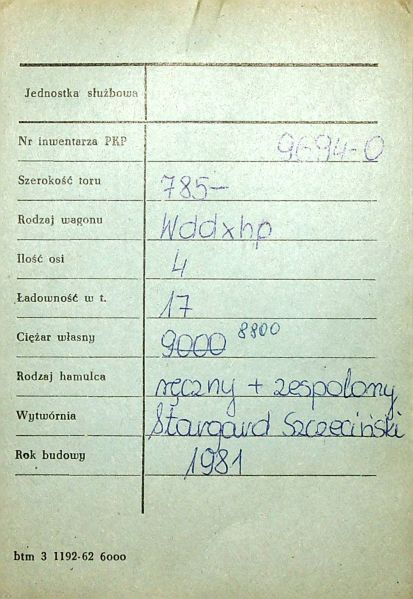 Jednostka służbowa
Nr inwentarza PKP 9694-0
Szerokość toru 785-
Rodzaj wagonu Wddxhp
Ilość osi 4
Ładowność w t. 17
Ciężar własny 9000 8800
Rodzaj hamulca ręczny + zespolony
Wytwórnia Stargard Szczeciński
Rok budowy 1981
btm 3 1192-62 6000